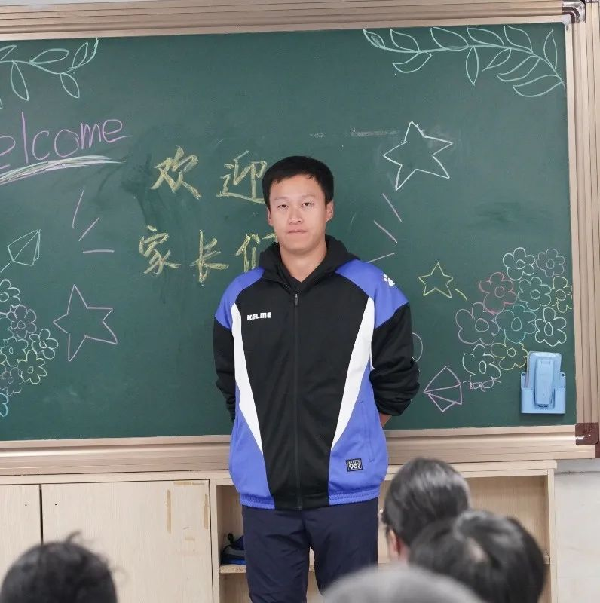 elcome
欢迎
家长们
KELME